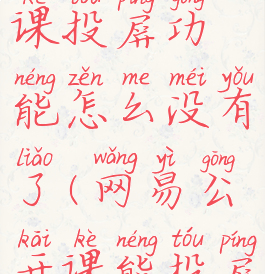 kè tóu píng gōng
课投屏功
néng zěn me méi yǒu
能怎么没有
liǎo wǎng yì gōng
了(网易公
kāi kè néng tóu píng
开课能投屏